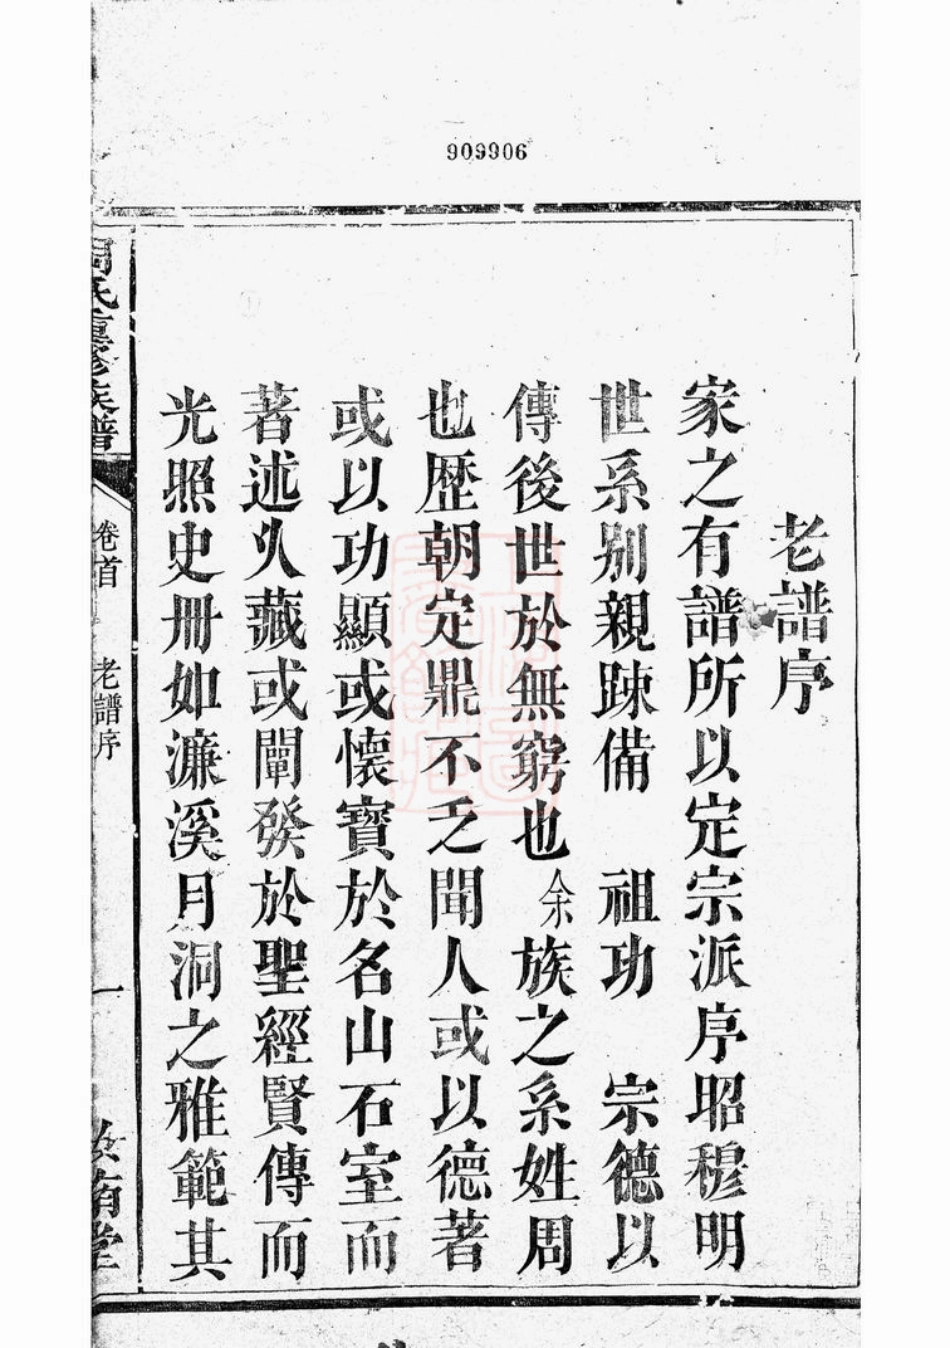 909906
老譜序
家之有譜所以定宗派序昭穆明
世系别親踈備 祖功 宗德以
傳後世於無窮也余族之系姓周
也歷朝定鼎不乏聞人或以德著
或以功顯或懷寶於名山石室而
著述久藏或闡發於聖經賢傳而
光照史冊如濂溪月洞之雅範其
周氏重修族譜
卷首 老譜序 一